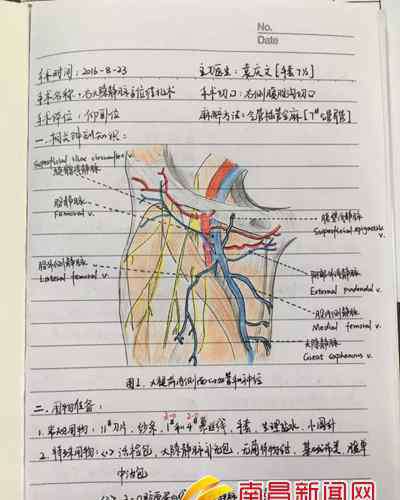 No.
Date
手术时间：2016-8-23
主刀医生：袁庆文［手套7½］
手术名称：右大隐静脉高位结扎术
手术切口：右侧腹股沟切口
手术体位：仰卧位
麻醉方法：全管插管全麻［7#
一、相关解剖知识：
Superficial iliac circumflex v.
旋髂浅静脉
股静脉
Femoral v.
股外侧静脉
Lateral femoral v.
腹壁浅静脉
Superficial epigastric v.
阴部外静脉
External pudendal v.
股内侧静脉
Medial femoral v.
大隐静脉
Great saphenous v.
图1. 大腿前内侧面的血管和神经
二. 用物准备：
1. 常规用物：11#刀片、纱条、1#和4#慕丝线、手套、生理盐水、小圆针
2. 特殊用物：<1> 浅检包、大隐静脉补充包、无菌持物钳、基础
中治包
南昌新闻网